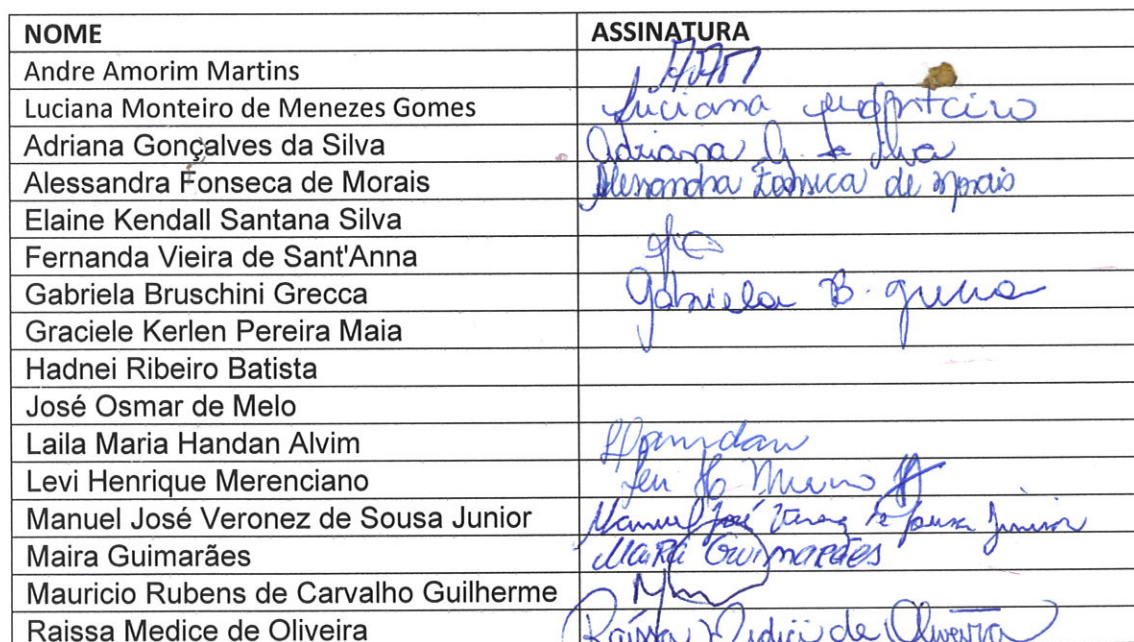 NOME ASSINATURA
Andre Amorim Martins
Luciana Monteiro de Menezes Gomes Luciana Monteiro
Adriana Gonçalves da Silva Adriana G. da Silva
Alessandra Fonseca de Morais Alessandra Fonseca de Morais
Elaine Kendall Santana Silva
Fernanda Vieira de Sant'Anna
Gabriela Bruschini Grecca Gabriela B. Grecca
Graciele Kerlen Pereira Maia
Hadnei Ribeiro Batista
José Osmar de Melo
Laila Maria Handan Alvim
Levi Henrique Merenciano Levi H
Manuel José Veronez de Sousa Junior Manuel José Veronez de Sousa Junior
Maira Guimarães Maira Guimarães
Mauricio Rubens de Carvalho Guilherme
Raissa Medice de Oliveira Raíssa Medici de Oliveira